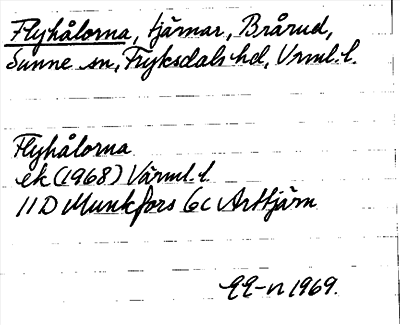 Flyhålorna, tjärnar, Brårud,
Sunne sn, Fryksdals hd, Vrml. l.
Flyhålorna
ek (1968) Värml. l.
11D Munkfors 6c Arttjärn
1969.